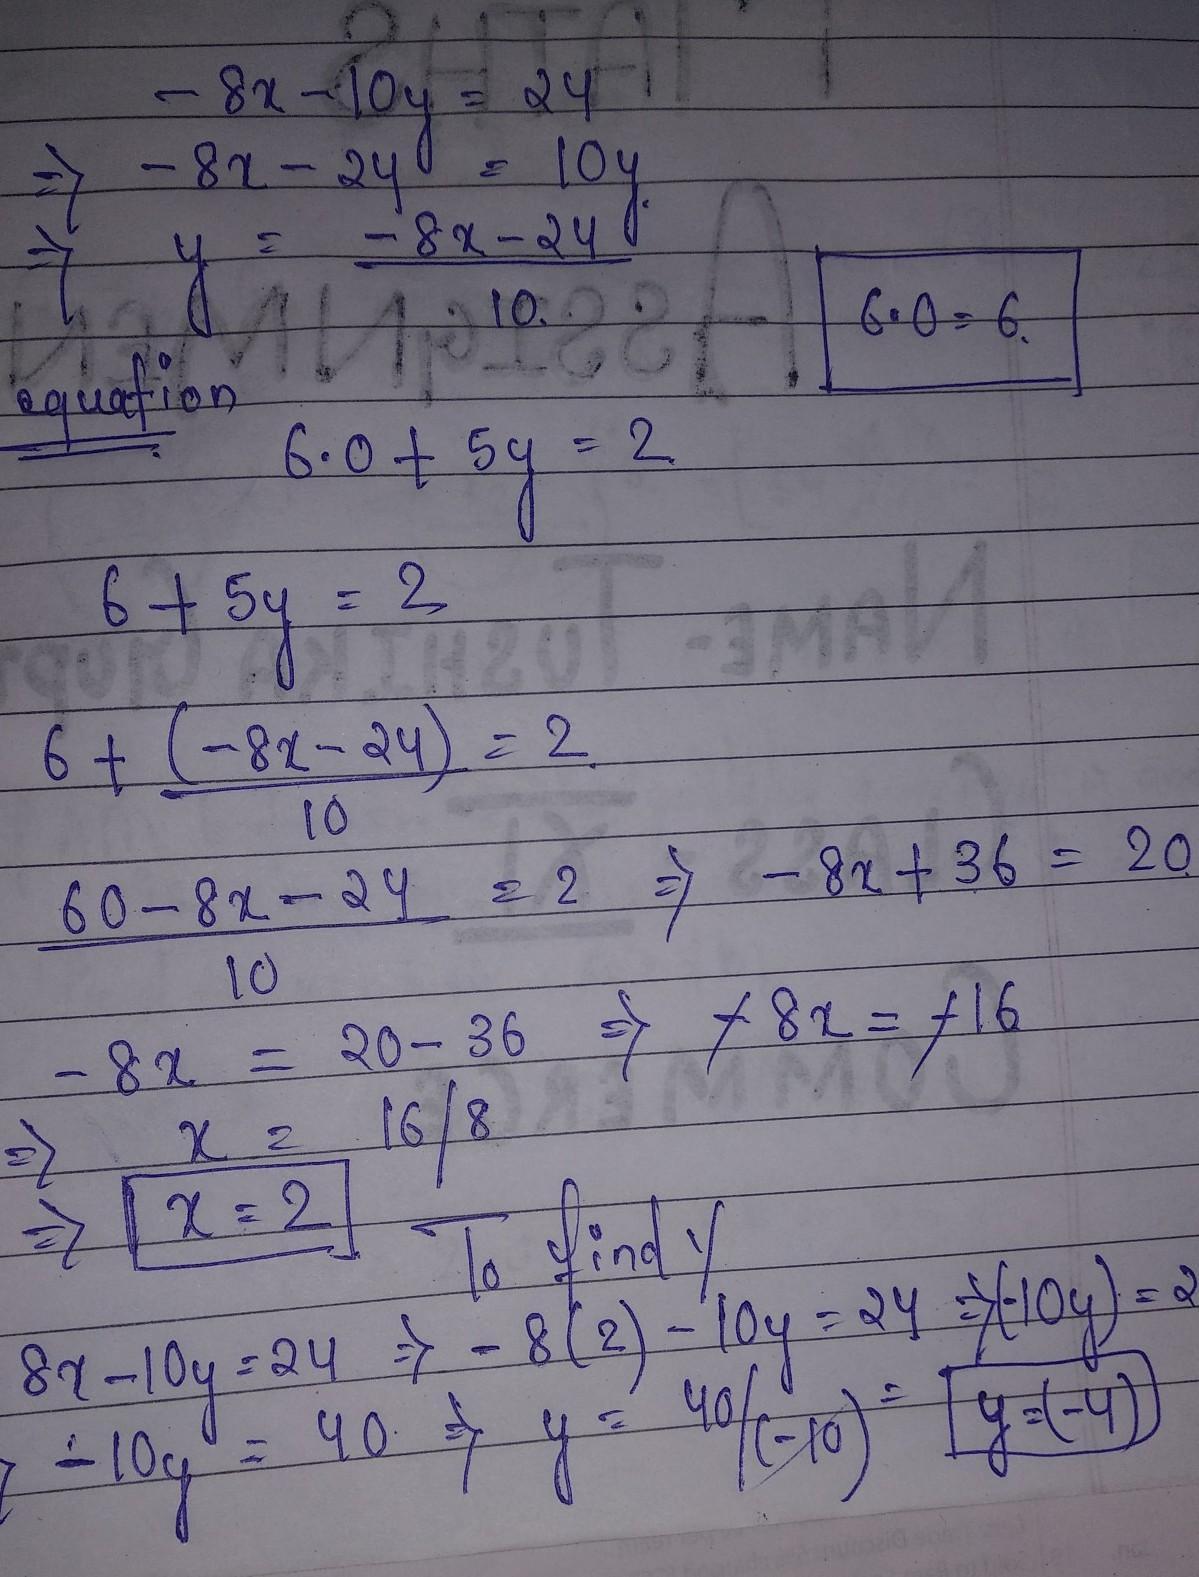 -8x-10y = 24
⇒ -8x-24 = 10y.
⇒ y = (-8x-24)/10.
6.0 = 6.
equation
6.0 + 5y = 2.
6 + 5y = 2
6 + (-8x-24)/10 = 2.
(60-8x-24)/10 = 2 ⇒ -8x+36 = 20.
-8x = 20-36 ⇒ -8x = -16
⇒ x = 16/8
⇒ x = 2
To find y
8x-10y=24 ⇒ -8(2)-10y=24 ⇒ (-10y) = 2
-10y = 40. ⇒ y = 40/(-10) = y=(-4)